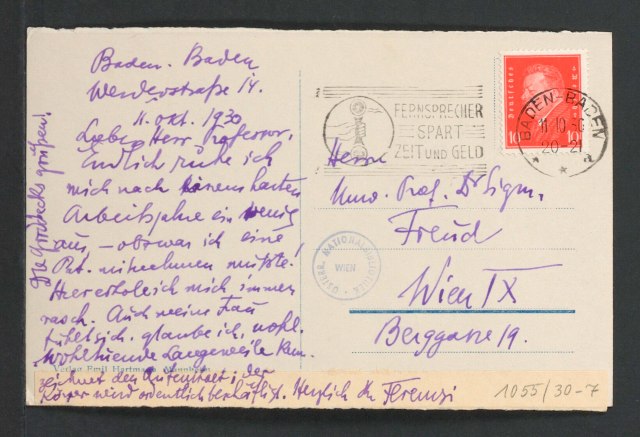 Baden-Baden
Werderstraße 14.
11. Okt. 1930
Lieber Herr Professor,
Endlich ruhe ich
mich nach einem harten
Arbeitsjahre ein wenig
aus, – obzwar ich eine
Pat. mitnehmen mußte.
Hier erhole ich mich immer
rasch. Auch meine Frau
fühlt sich, glaube ich, wohl.
Wohltuende Langeweile kenn-
zeichnet den Aufenthalt; der
Körper wird ordentlich beschäftigt. Herzlich Ihr Ferenczi
grüßen!
Verlag Emil Hartmann, Mannheim
FERNSPRECHER
SPART
ZEIT UND GELD
Deutsches
10
10
BADEN-BADEN
11.10.30
20-21
a
Herrn
Univ. Prof. Dr Sigm.
Freud
Wien IX
Berggasse 19.
ÖSTERR. NATIONALBIBLIOTHEK
WIEN
1055/30-7